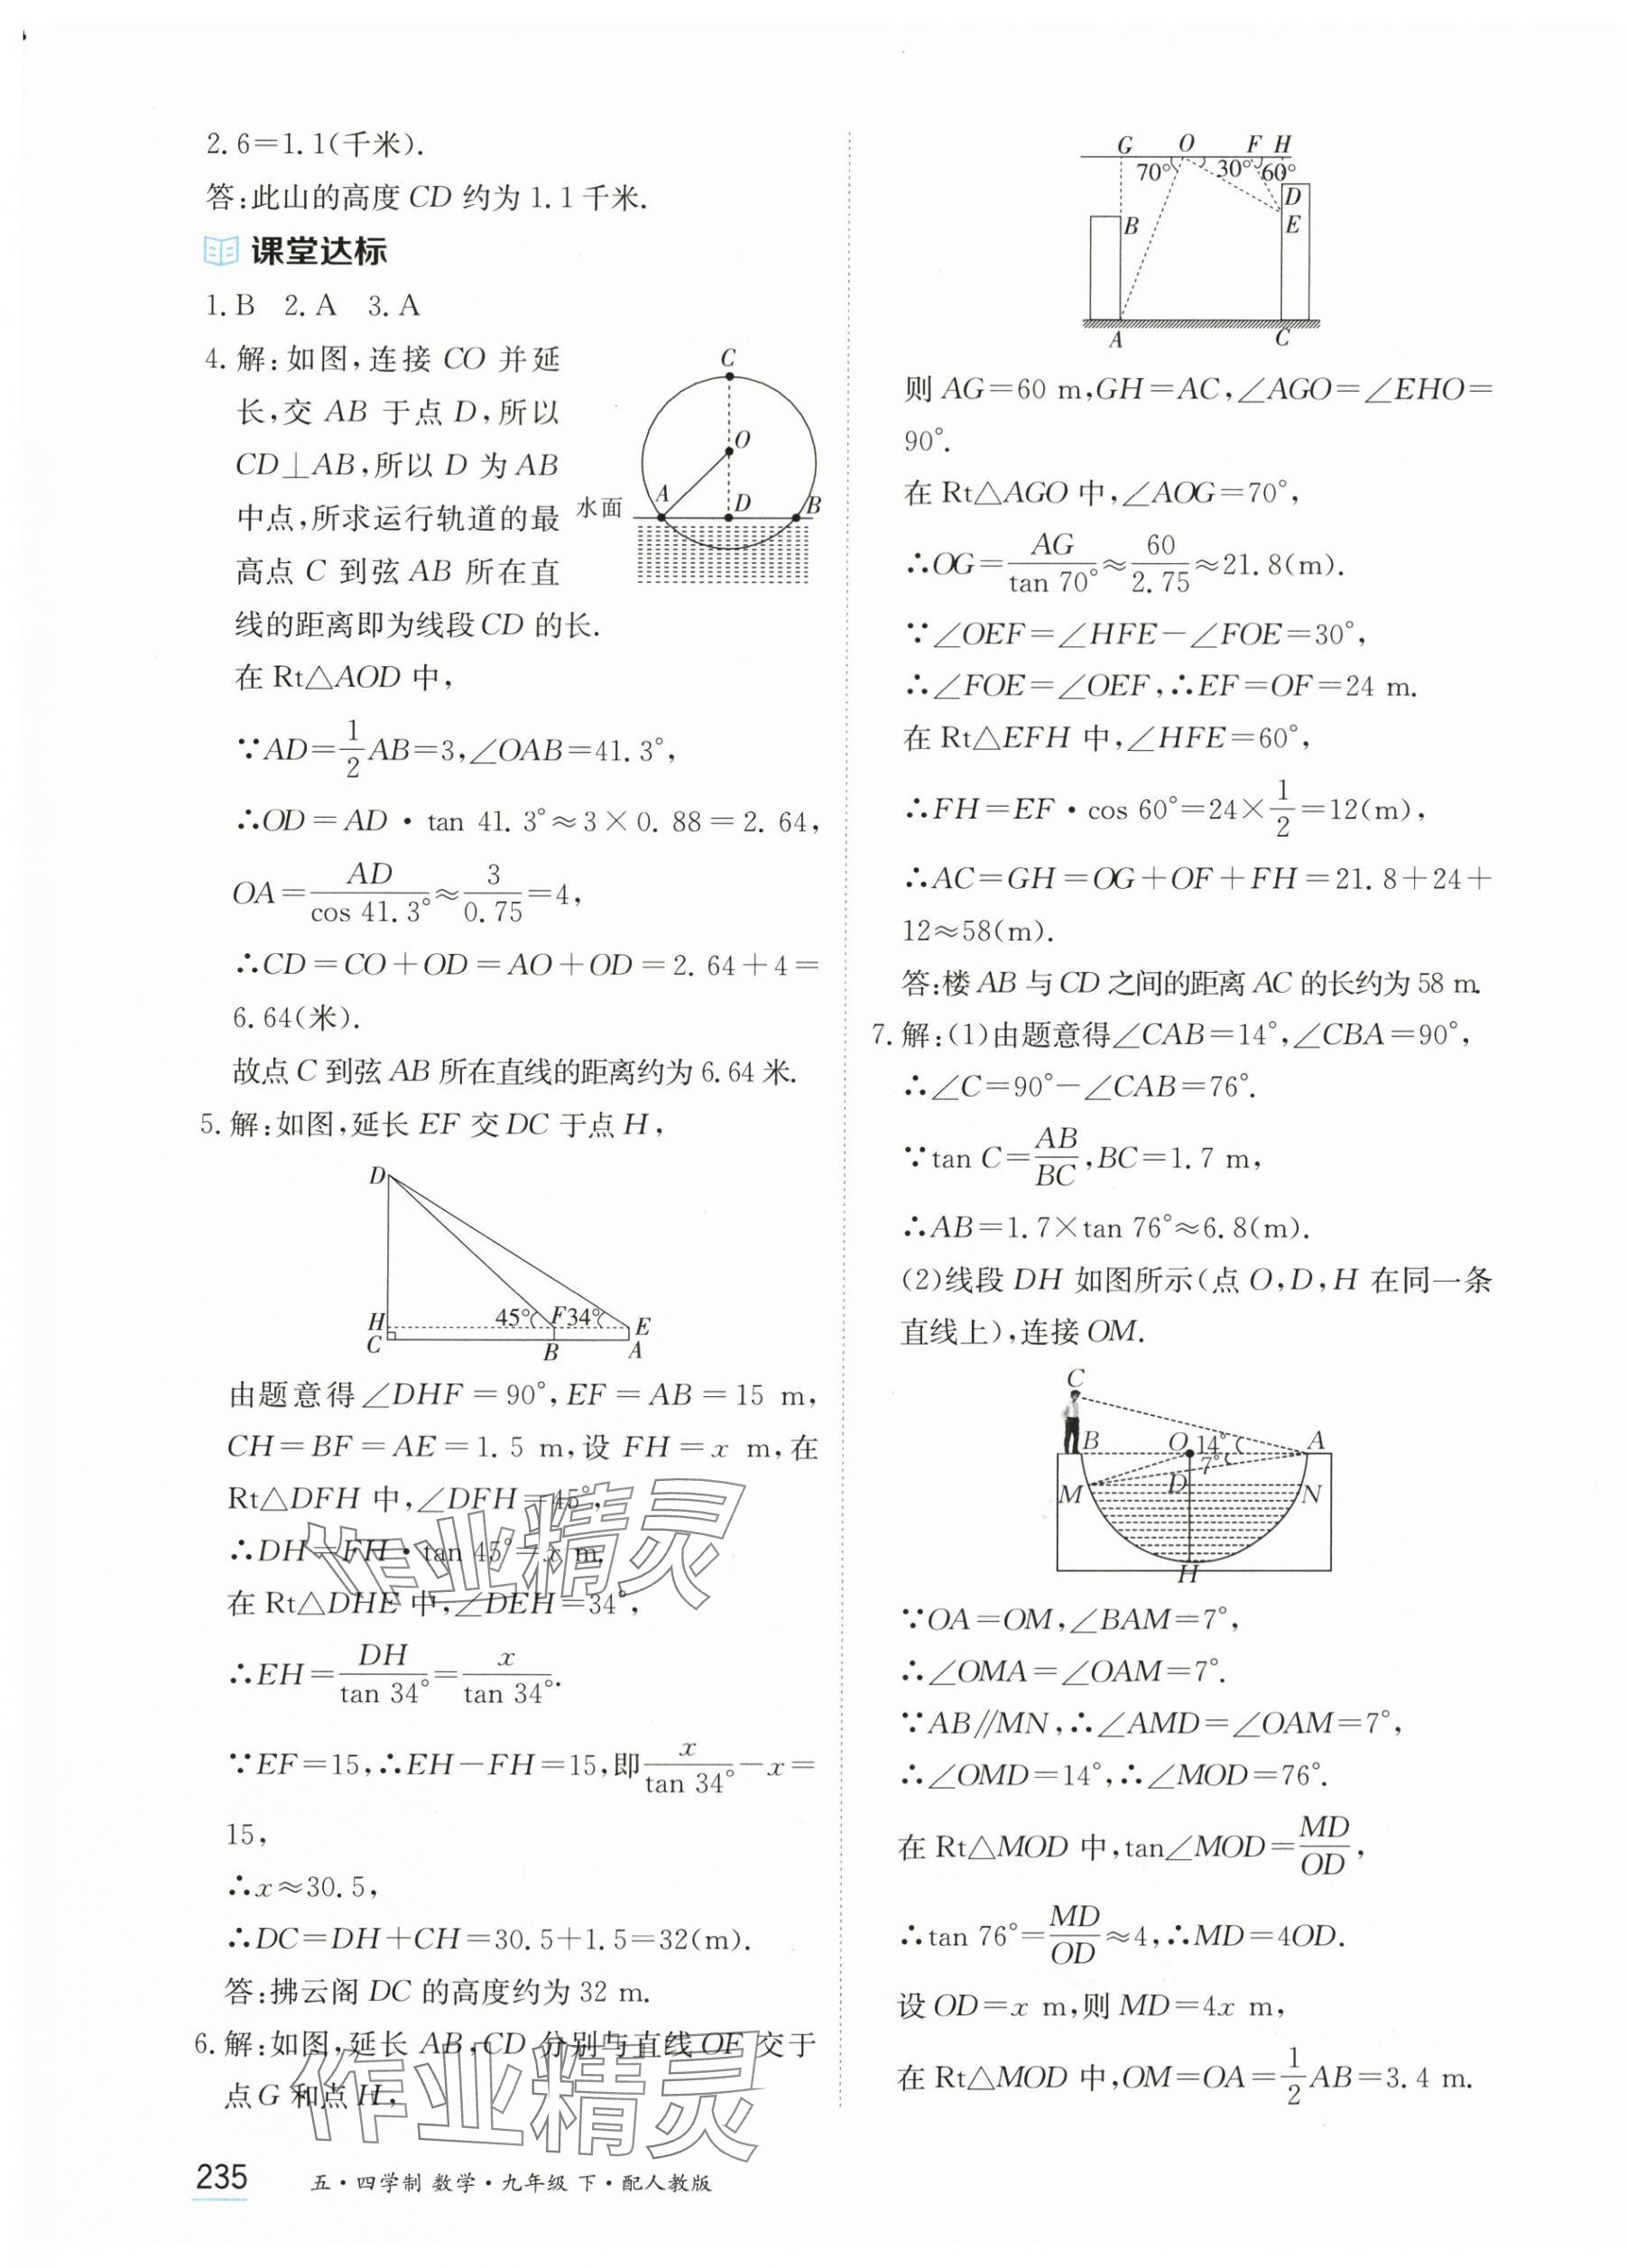 2.6=1.1(千米).
答:此山的高度CD约为1.1千米.
课堂达标
1.B 2.A 3.A
4.解:如图,连接CO并延
长,交AB于点D,所以
CD⊥AB,所以D为AB
中点,所求运行轨道的最
高点C到弦AB所在直
线的距离即为线段CD的长.
C
O
A
D
B
水面
在Rt△AOD中,
∵AD=1/2AB=3,∠OAB=41.3°,
∴OD=AD·tan 41.3°≈3×0.88=2.64,
OA=AD/cos 41.3°≈3/0.75=4,
∴CD=CO+OD=AO+OD=2.64+4=
6.64(米).
故点C到弦AB所在直线的距离约为6.64米.
5.解:如图,延长EF交DC于点H,
D
H 45° F 34° E
C B A
由题意得∠DHF=90°,EF=AB=15 m,
CH=BF=AE=1.5 m,设FH=x m,在
Rt△DFH中,∠DFH=45°,
∴DH=FH·tan 45°=x m.
在Rt△DHE中,∠DEH=34°,
∴EH=DH/tan 34°=x/tan 34°.
∵EF=15,∴EH-FH=15,即x/tan 34°-x=
15,
∴x≈30.5,
∴DC=DH+CH=30.5+1.5=32(m).
答:拂云阁DC的高度约为32 m.
6.解:如图,延长AB,CD分别与直线OF交于
点G和点H,
作业精灵
作业精灵
235 五·四学制 数学·九年级 下·配人教版
G O F H
70° 30° 60°
D
B E
A C
则AG=60 m,GH=AC,∠AGO=∠EHO=
90°.
在Rt△AGO中,∠AOG=70°,
∴OG=AG/tan 70°≈60/2.75≈21.8(m).
∵∠OEF=∠HFE-∠FOE=30°,
∴∠FOE=∠OEF,∴EF=OF=24 m.
在Rt△EFH中,∠HFE=60°,
∴FH=EF·cos 60°=24×1/2=12(m),
∴AC=GH=OG+OF+FH=21.8+24+
12≈58(m).
答:楼AB与CD之间的距离AC的长约为58 m.
7.解:(1)由题意得∠CAB=14°,∠CBA=90°,
∴∠C=90°-∠CAB=76°.
∵tan C=AB/BC,BC=1.7 m,
∴AB=1.7×tan 76°≈6.8(m).
(2)线段DH如图所示(点O,D,H在同一条
直线上),连接OM.
C
B O 14° A
7°
M D N
H
∵OA=OM,∠BAM=7°,
∴∠OMA=∠OAM=7°.
∵AB∥MN,∴∠AMD=∠OAM=7°,
∴∠OMD=14°,∴∠MOD=76°.
在Rt△MOD中,tan∠MOD=MD/OD,
∴tan 76°=MD/OD≈4,∴MD=4OD.
设OD=x m,则MD=4x m,
在Rt△MOD中,OM=OA=1/2AB=3.4 m.